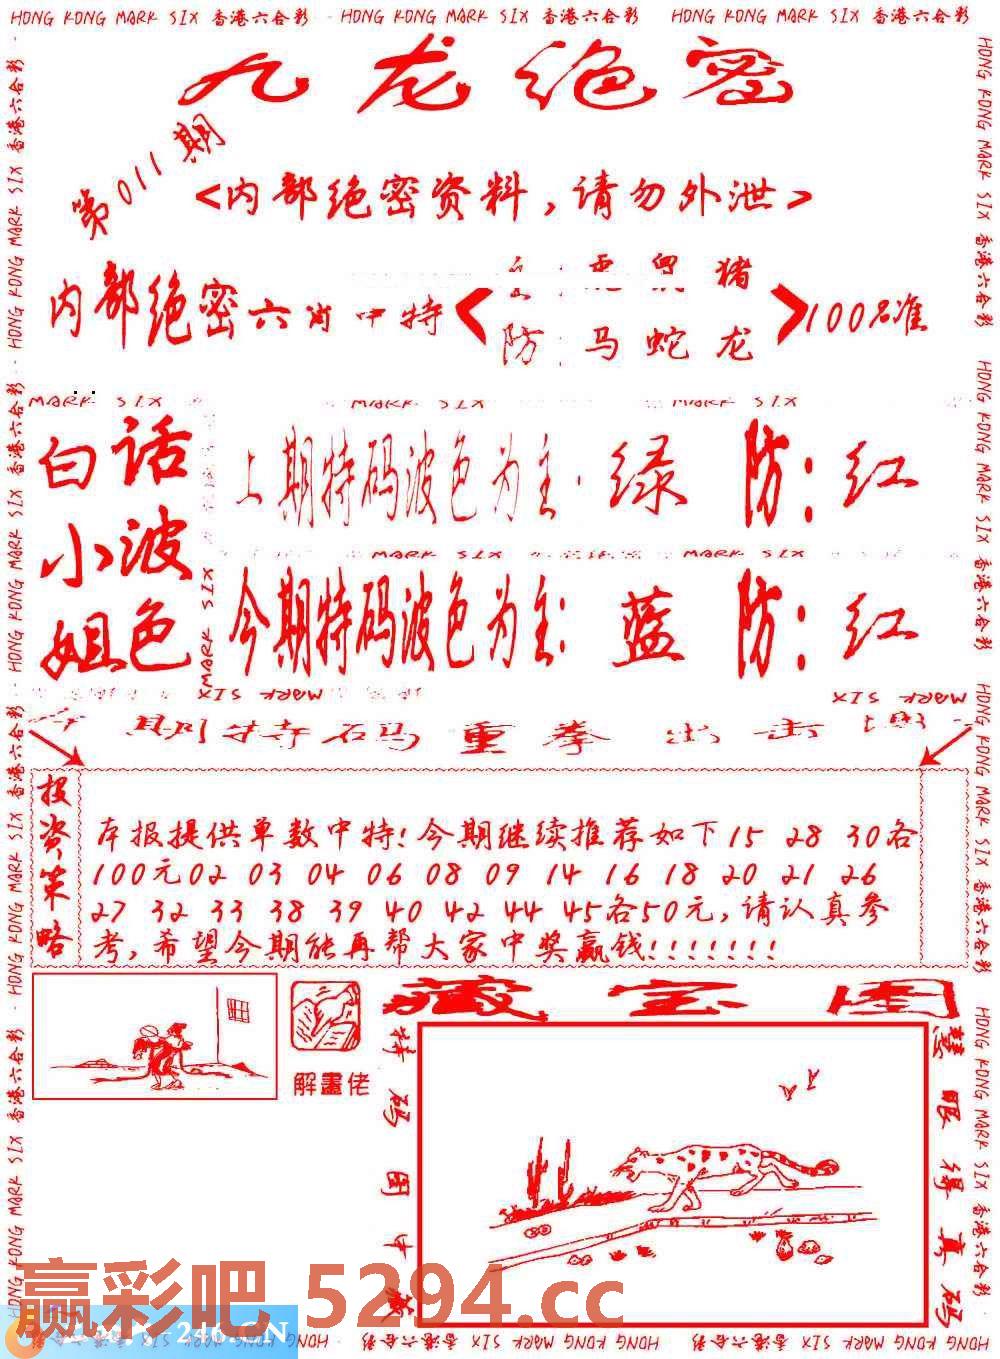 HONG KONG MARK SIX 香港六合彩 HONG KONG MARK SIX 香港六合彩 HONG KONG MARK SIX 香港六合彩
九龙绝密
第011期
<内部绝密资料,请勿外泄>
内部绝密六肖中特
猪
防 马蛇龙
100%准
MARK SIX MARK SIX MARK SIX
白话
小波
姐色
上期特码波色为主:绿 防:红
MARK SIX MARK SIX
今期特码波色为主:蓝 防:红
MARK SIX
MARK SIX MARK SIX
期特码重拳出击
投资策略
本报提供单数中特!今期继续推荐如下15 28 30各
100元02 03 04 06 08 09 14 16 18 20 21 26
27 32 33 38 39 40 42 44 45各50元,请认真参
考,希望今期能再帮大家中奖赢钱!!!!!!!
解畫佬
藏宝图
特码图中藏
慧眼得真码
赢彩吧 5294.cc
246.CN
HONG KONG MARK SIX 香港六合彩 HONG KONG MARK SIX 香港六合彩